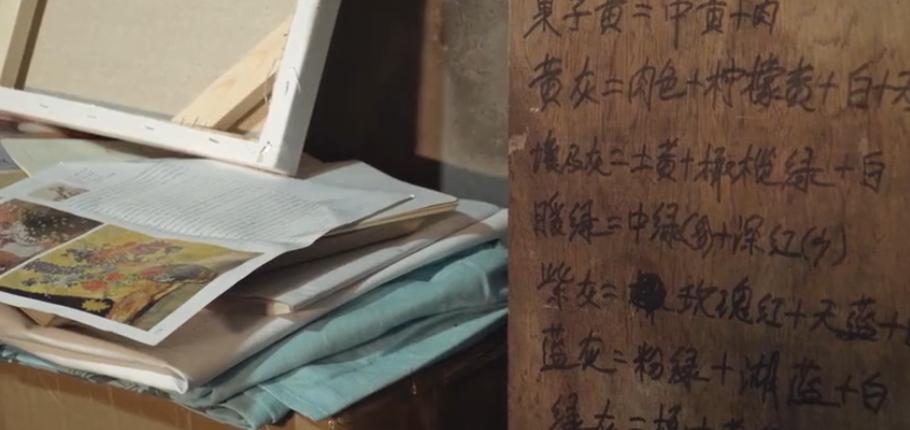 果子黄=中黄+肉
黄灰=肉色+柠檬黄+白+天
埃及灰=土黄+橄榄绿+白
暖绿=中绿(多)+深红(少)
紫灰=玫瑰红+天蓝+
蓝灰=粉绿+湖蓝+白
绿灰=橘+